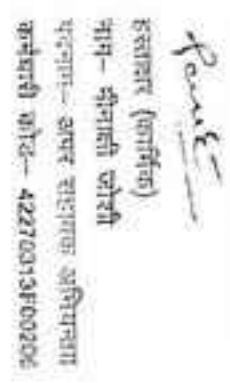 हस्ताक्षर (कार्मिक)
नाम– मीनाक्षी जोशी
पदनाम– अपर सहायक अभियन्ता
कर्मचारी कोड– 42270313F00206